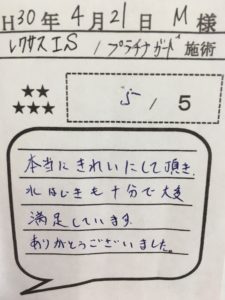 H30年 4月21日 M様
レクサスIS / プラチナガード 施術
★★
★★★
5 / 5
本当にきれいにして頂き、
水はじきも十分で大変
満足しています。
ありがとうございました。